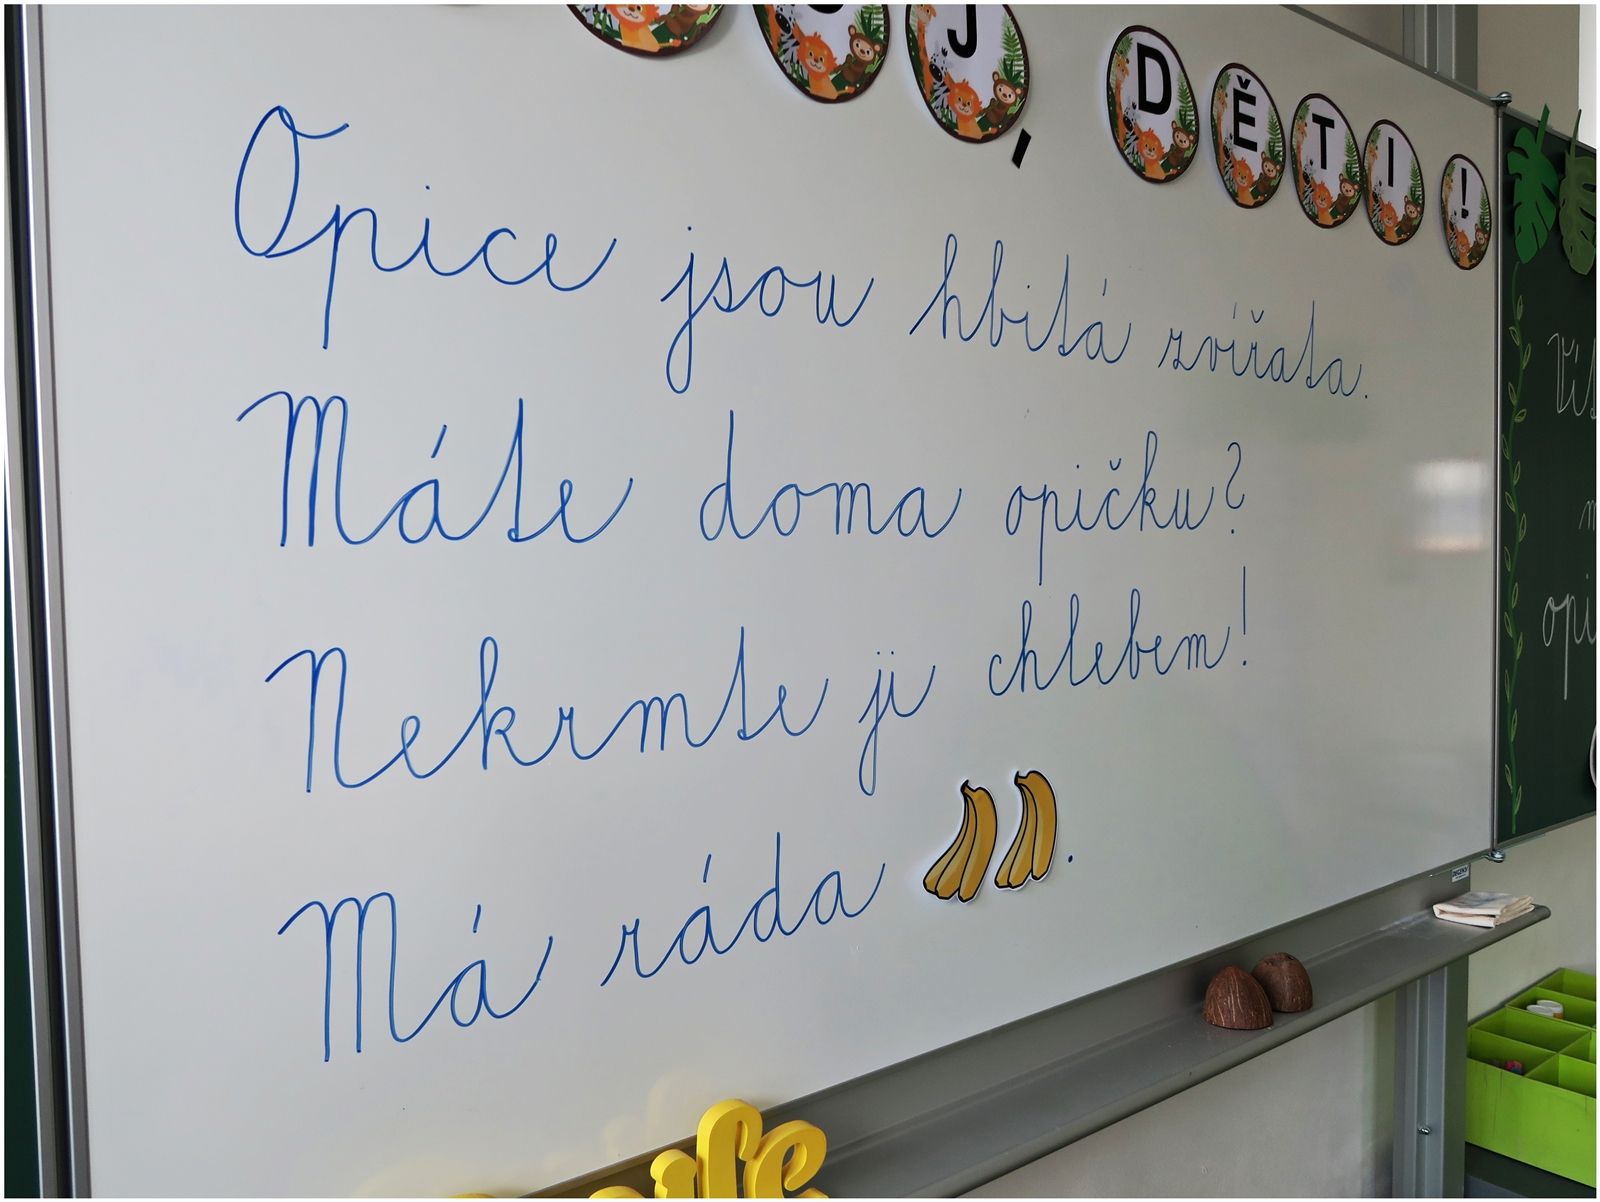 J, DĚTI!
Opice jsou hbitá zvířata.
Máte doma opičku?
Nekrmte ji chlebem!
Má ráda .
opi